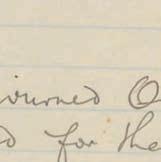 ourned O
d for the